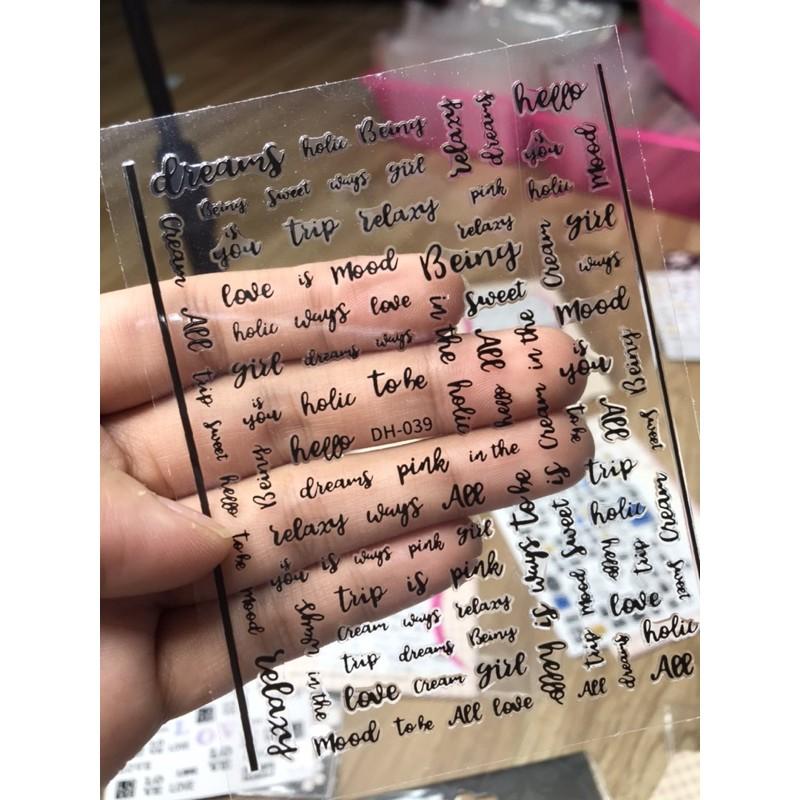 dreams holic Being relaxy dreams hello
Being Sweet ways girl is you Mood
Cream is you trip relaxy pink holic
relaxy Cream girl
love is Mood Being ways
All holic ways love in the Sweet Mood
trip girl dreams ways All in the is you Being
is you holic to be holic hello Cream to be All
Sweet hello DH-039 Sweet
hello Being dreams pink in the is trip
relaxy ways All to be Sweet holic Cream
to be is you is ways pink girl ways hello trip
Mood ways trip is pink Mood love Sweet
Cream ways relaxy is
relaxy in the trip dreams Being hello trip dreams holic
love Cream girl All All
Mood to be All love